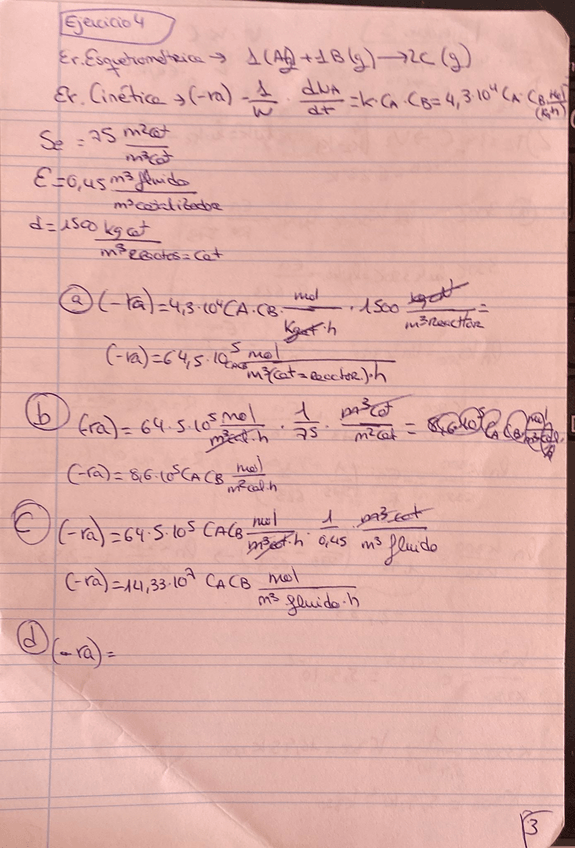 Ejercicio 4
Er. Esquetiométrica → 1(Ag) + 1B(g) → 2C(g)
Er. Cinética → (-ra) = 1/W · dNA/dt = k·CA·CB = 4,3·10⁴ CA·CB mol/(kg·h)
Se = 75 m²cat/m³cat
ε = 0,45 m³ fluido/m³ catalizador
d = 1500 kg cat/m³ reactor = cat
a (-ra) = 4,3·10⁴ CA·CB · mol/kgcat·h · 1500 kgcat/m³ reactor =
(-ra) = 64,5·10⁵ CACB mol/m³(cat = reactor)·h
b (-ra) = 64.5·10⁵ mol/m³cat·h · 1/75 · m³cat/m²cat =
(-ra) = 8,6·10⁵ CACB mol/m²cat·h
c (-ra) = 64.5·10⁵ CACB mol/m³cat·h · 1/0,45 · m³cat/m³ fluido
(-ra) = 14,33·10⁷ CACB mol/m³ fluido·h
d (-ra) =
3